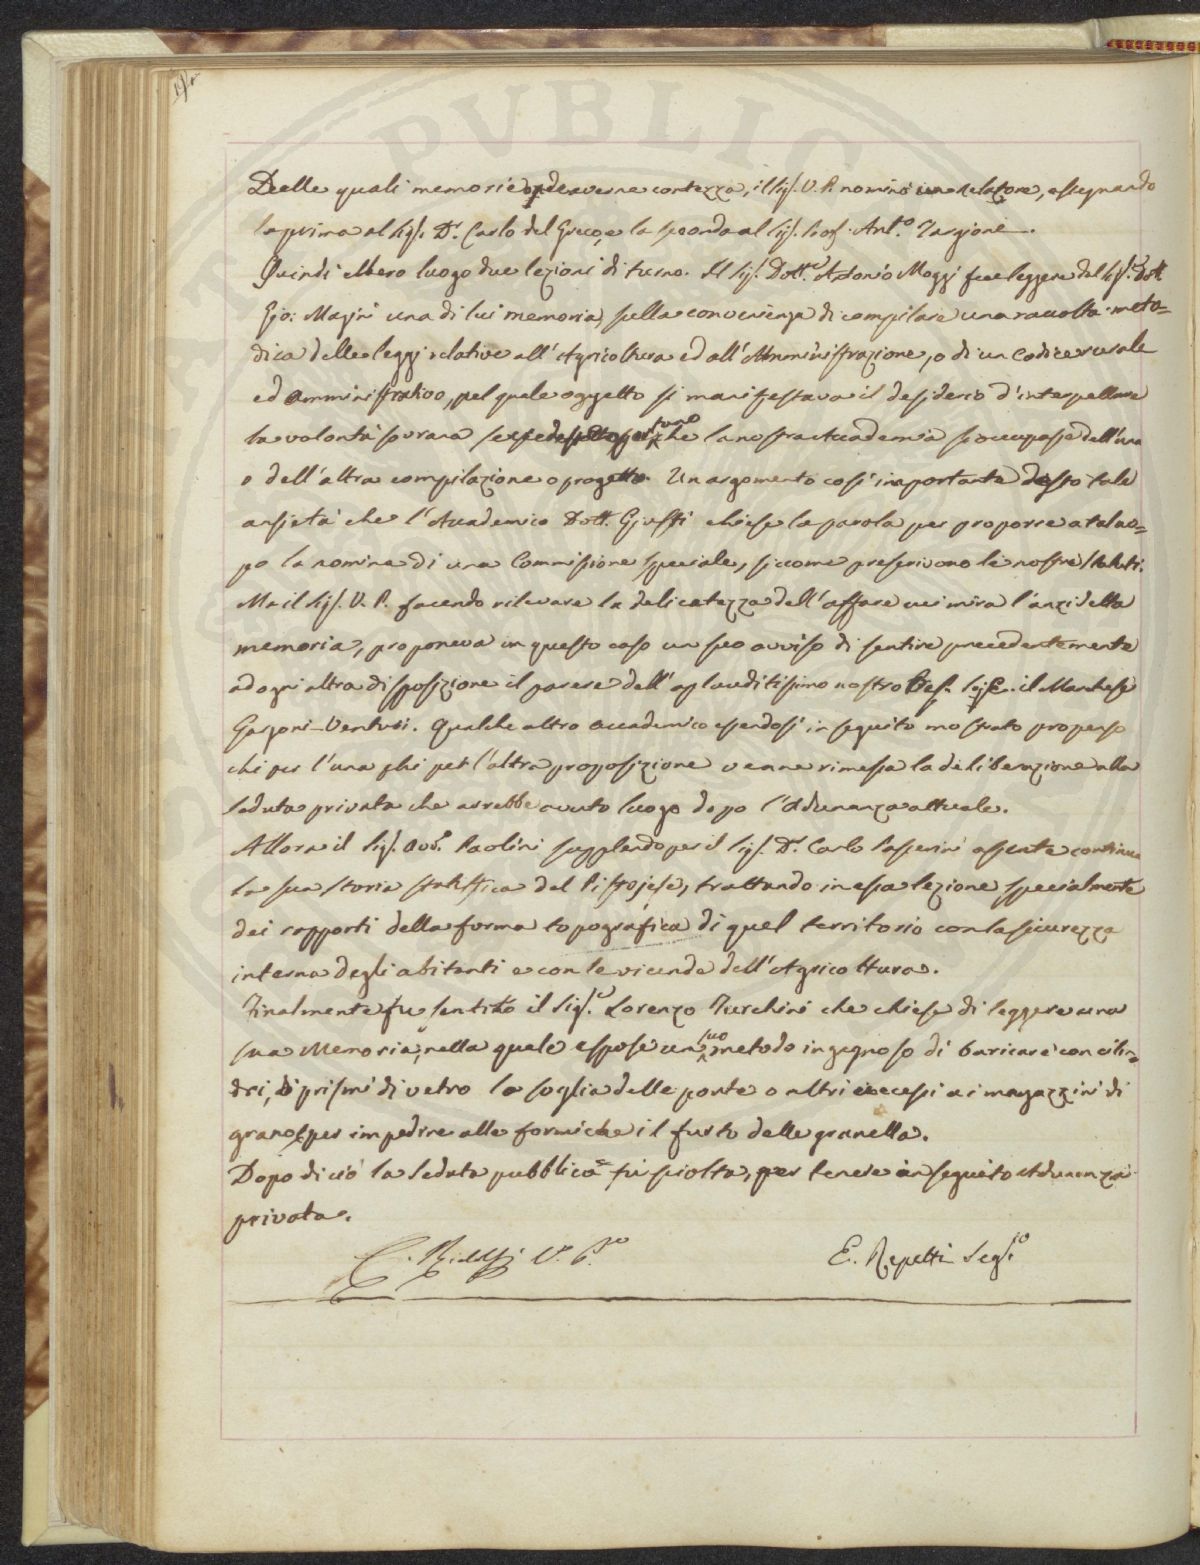 Delle quali memorie onde averne contezza, il Sig. V. P. nominò un relatore, assegnando
la prima al Sig. Dr. Carlo del Greco, e la seconda al Sig. Prof. Ant.o Targioni.
Quindi ebbero luogo due lezioni di turno. Il Sig. Dott.e Antonio Moggi fece leggere dal Sig.e Dott.
Gio: Masini una di lui memoria, sulla convenienza di compilare una raccolta meto=
dica delle leggi relative all'Agricoltura ed all'Amministrazione, o di un Codice rurale
ed amministrativo, pel quale oggetto si manifestava il desiderio d'interpellare
la volontà sovrana che la nostra Accademia si occupasse dell'una
o dell'altra compilazione o progetto. Un argomento così importante destò tale
ansietà che l'Accademico Dott. Giusti chiese la parola per proporre a tal uo=
po la nomina di una Commissione speciale, siccome prescrivono le nostre Statuti.
Ma il Sig. V. P. facendo rilevare la delicatezza dell'affare cui mira l'anzidetta
memoria, proponeva in questo caso un suo avviso di sentire precedentemente
ad ogni altra disposizione il parere dell'applauditissimo nostro Pres. Sig.e il Marchese
Garzoni-Venturi. Qualche altro accademico essendosi in seguito mostrato propenso
chi per l'una chi per l'altra proposizione venne rimessa la deliberazione alla
Seduta privata che avrebbe avuto luogo dopo l'Adunanza attuale.
Allora il Sig. Avv.o Paolini supplendo per il Sig. Dr. Carlo Passerini assente continua
la sua storia statistica del Pistojese, trattando in essa lezione specialmente
dei rapporti della forma topografica di quel territorio con la sicurezza
interna degli abitanti e con le vicende dell'Agricoltura.
Finalmente fu sentito il Sig.e Lorenzo Turchini che chiese di leggere una
sua Memoria, nella quale espose un suo metodo ingegnoso di baricare con cilin=
dri, o prismi di vetro le soglie delle porte o altri accessi ai magazzini di
grano per impedire alle formiche il furto delle granella.
Dopo di ciò la Seduta pubblica fu sciolta, per tenere in seguito Adunanza
privata.
C. Ridolfi V. P.te
E. Repetti Seg.io